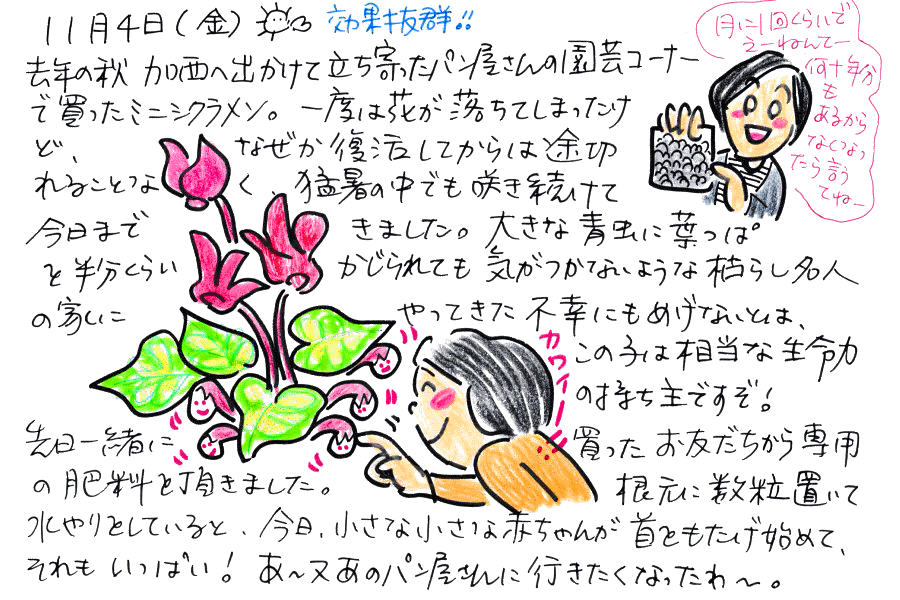 11月4日(金) 効果抜群!!
月に1回くらいで
えーねんてー
何十年分
も
あるから
なくなっ
たら言う
てねー
去年の秋 加西へ出かけて立ち寄ったパン屋さんの園芸コーナー
で買ったミニシクラメン。一度は花が落ちてしまったけ
ど、なぜか復活してからは途切
れることなく、猛暑の中でも咲き続けて
今日まできました。大きな青虫に葉っぱ
を半分くらいかじられても気がつかないような枯らし名人
の家にやってきた不幸にもめげないとは、
カワイー!!
この子は相当な生命力
の持ち主ですぞ!
先日一緒に買ったお友だちから専用
の肥料を頂きました。根元に数粒置いて
水やりをしていると、今日、小さな小さな赤ちゃんが首をもたげ始めて、
それもいっぱい!あ～又あのパン屋さんに行きたくなったわ～。